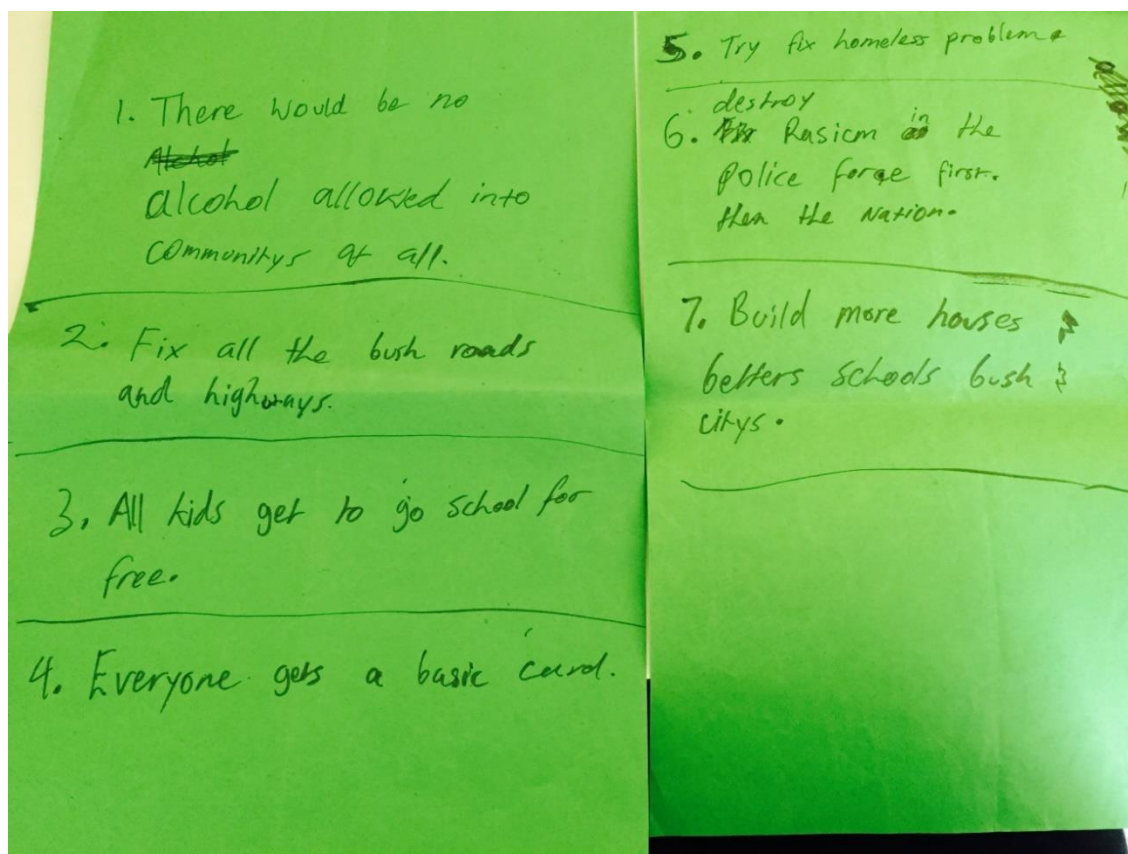 1. There would be no
alcohol allowed into
communitys at all.
2. Fix all the bush roads
and highways.
3. All kids get to go school for
free.
4. Everyone gets a basic card.
5. Try fix homeless problem.
destroy
6. Rasicm in the
police force first.
then the Nation.
7. Build more houses
betters schools bush
citys.